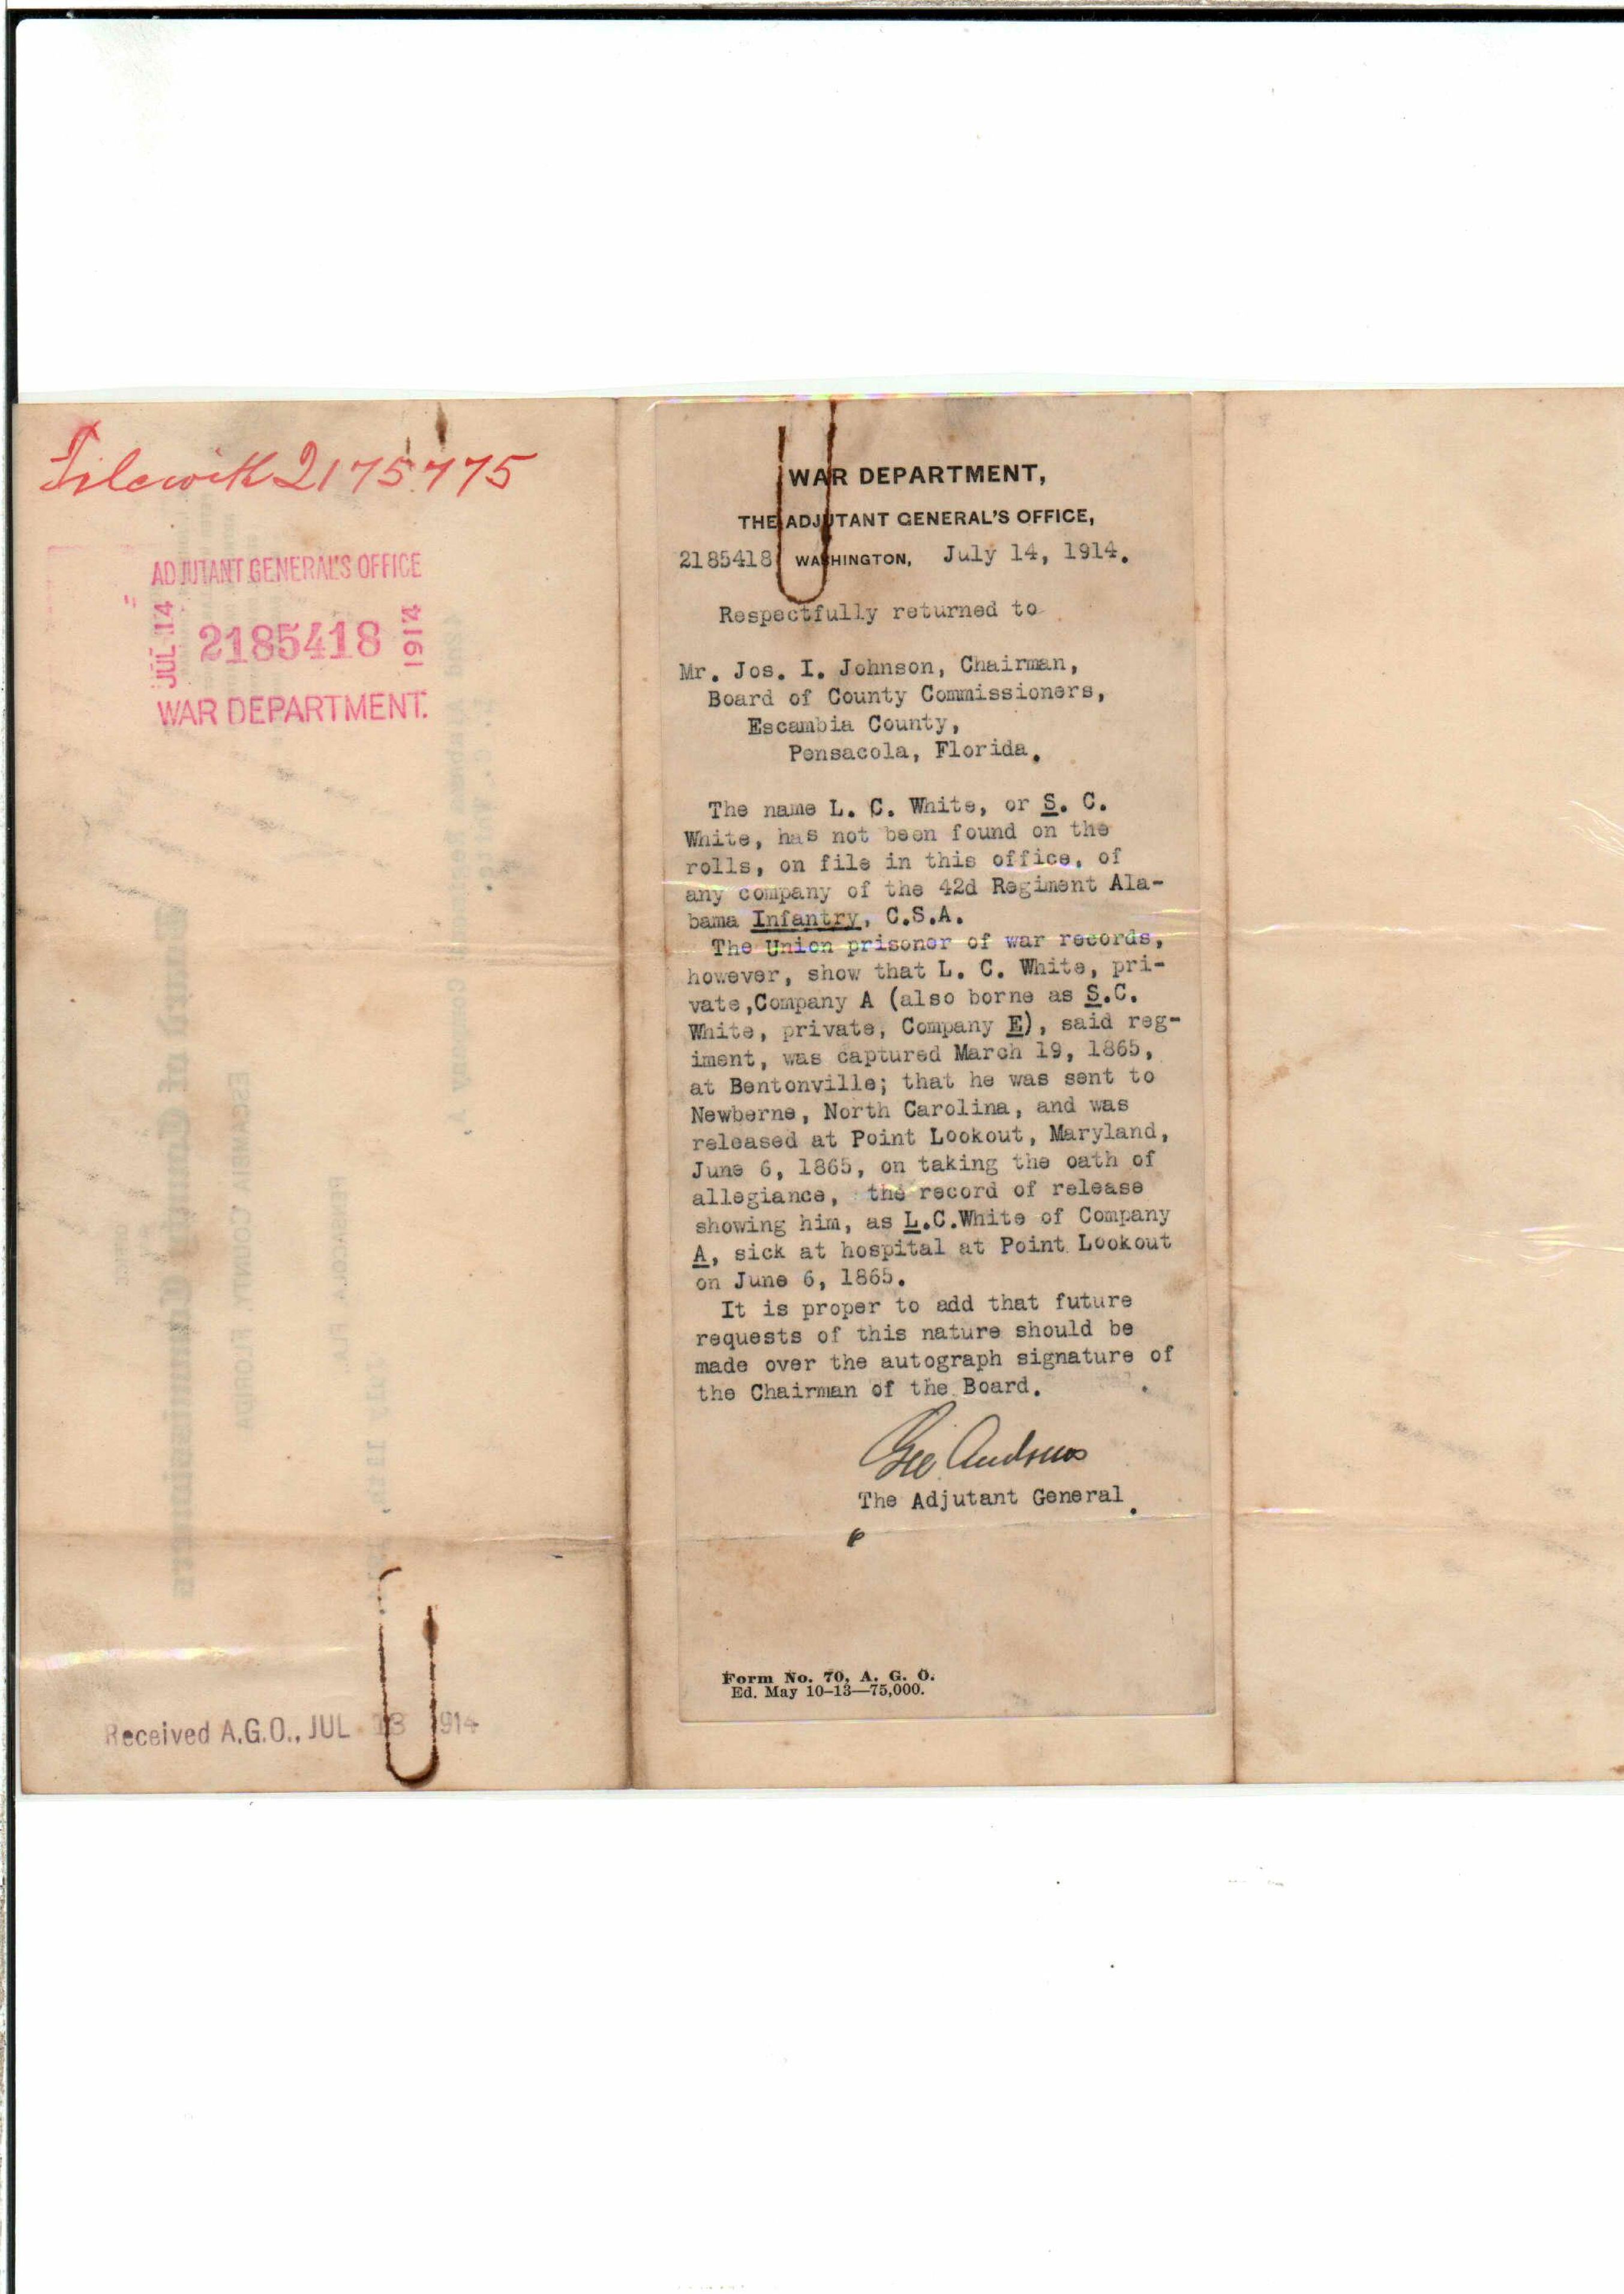 File with 2175775
ADJUTANT GENERAL'S OFFICE
JUL 14 2185418 1914
WAR DEPARTMENT.
Received A.G.O., JUL 13 1914
WAR DEPARTMENT,
THE ADJUTANT GENERAL'S OFFICE,
2185418 WASHINGTON, July 14, 1914.
Respectfully returned to
Mr. Jos. I. Johnson, Chairman,
Board of County Commissioners,
Escambia County,
Pensacola, Florida.
The name L. C. White, or S. C.
White, has not been found on the
rolls, on file in this office, of
any company of the 42d Regiment Ala-
bama Infantry, C.S.A.
The Union prisoner of war records,
however, show that L. C. White, pri-
vate,Company A (also borne as S.C.
White, private, Company E), said reg-
iment, was captured March 19, 1865,
at Bentonville; that he was sent to
Newberne, North Carolina, and was
released at Point Lookout, Maryland,
June 6, 1865, on taking the oath of
allegiance, the record of release
showing him, as L.C.White of Company
A, sick at hospital at Point Lookout
on June 6, 1865.
It is proper to add that future
requests of this nature should be
made over the autograph signature of
the Chairman of the Board.
Geo Andrews
The Adjutant General.
Form No. 70, A. G. O.
Ed. May 10-13—75,000.